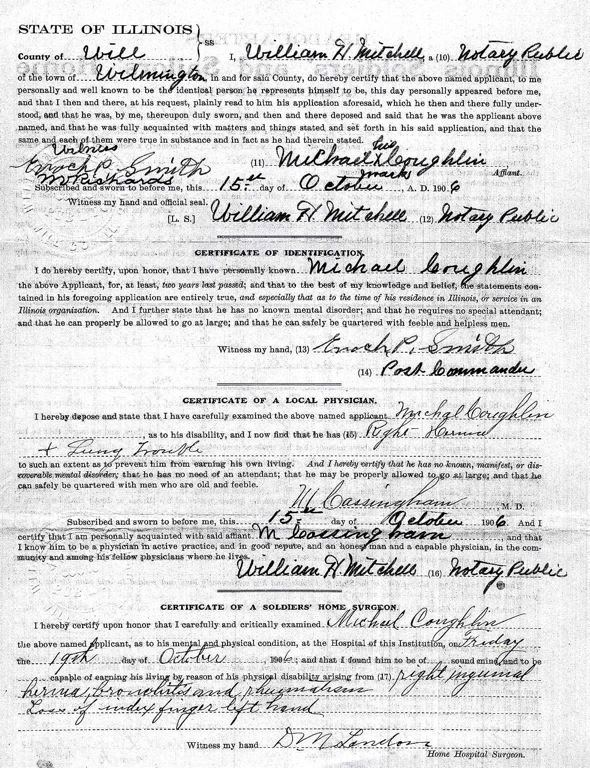 STATE OF ILLINOIS } SS
County of Will I, William H Mitchell, a (10) Notary Public
of the town of Wilmington in and for said County, do hereby certify that the above named applicant, to me
personally and well known to be the identical person he represents himself to be, this day personally appeared before me,
and that I then and there, at his request, plainly read to him his application aforesaid, which he then and there fully under-
stood, and that he was, by me, thereupon duly sworn, and then and there deposed and said that he was the applicant above
named, and that he was fully acquainted with matters and things stated and set forth in his said application, and that the
same and each of them were true in substance and in fact as he had therein stated.
Witness
Enoch P. Smith (11) Michael his x mark Coughlin
M Richards Affiant.
Subscribed and sworn to before me, this 15th day of October, A. D. 1906
Witness my hand and official seal.
[L. S.] William H Mitchell (12) Notary Public
CERTIFICATE OF IDENTIFICATION.
I do hereby certify, upon honor, that I have personally known Michael Coughlin
the above Applicant, for, at least, two years last passed; and that to the best of my knowledge and belief, the statements con-
tained in his foregoing application are entirely true, and especially that as to the time of his residence in Illinois, or service in an
Illinois organization. And I further state that he has no known mental disorder; and that he requires no special attendant;
and that he can properly be allowed to go at large; and that he can safely be quartered with feeble and helpless men.
Witness my hand, (13) Enoch P. Smith
(14) Post Commander
CERTIFICATE OF A LOCAL PHYSICIAN.
I hereby depose and state that I have carefully examined the above named applicant Michal Coughlin
, as to his disability, and I now find that he has (15) Right Hernia
+ Lung Trouble
to such an extent as to prevent him from earning his own living. And I hereby certify that he has no known, manifest, or dis-
coverable mental disorder; that he has no need of an attendant; that he may be properly allowed to go at large; and that he
can safely be quartered with men who are old and feeble.
M Cassingham M. D.
Subscribed and sworn to before me, this 15th day of October 1906. And I
certify that I am personally acquainted with said affiant M Cassingham, and that
I know him to be a physician in active practice, and in good repute, and an honest man and a capable physician, in the com-
munity and among his fellow physicians where he lives.
William H Mitchell (16) Notary Public
CERTIFICATE OF A SOLDIERS' HOME SURGEON.
I hereby certify upon honor that I carefully and critically examined Michael Coughlin
the above named applicant, as to his mental and physical condition, at the Hospital of this Institution, on Friday
the 19th day of October 1906; and that I found him to be of sound mind, and to be
capable of earning his living by reason of his physical disability arising from (17) right inguinal
hernia, bronchitis and rheumatism
Loss of index finger left hand
Witness my hand D M Landon
Home Hospital Surgeon.